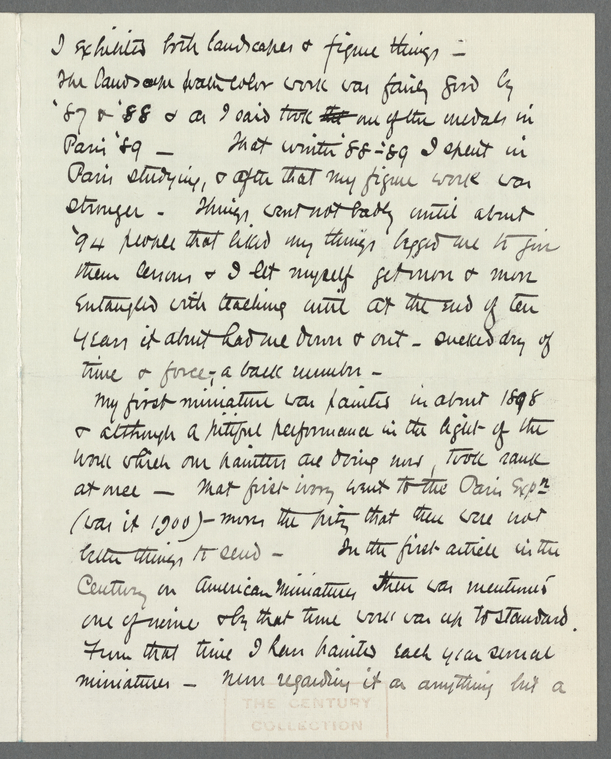 I exhibited both landscapes & figure things –
The landscape watercolor work was fairly good by
'87 & '88 & as I said took the one of the medals in
Paris '89 – That winter '88–'89 I spent in
Paris studying, & after that my figure work was
stronger – Things went not badly until about
'94 people that liked my things begged me to give
them lessons & I let myself get more & more
entangled with teaching until at the end of ten
years it about had me down & out – sucked dry of
time & force, a back number –
My first miniature was painted in about 1898
& although a pitiful performance in the light of the
work which our painters are doing now, took rank
at once – That first ivory went to the Paris Expn
(was it 1900) – more the pity that there were not
better things to send – In the first article in the
Century on American Miniatures there was mentioned
one of mine & by that time work was up to standard.
From that time I have painted each year several
miniatures – never regarding it as anything but a
THE CENTURY
COLLECTION